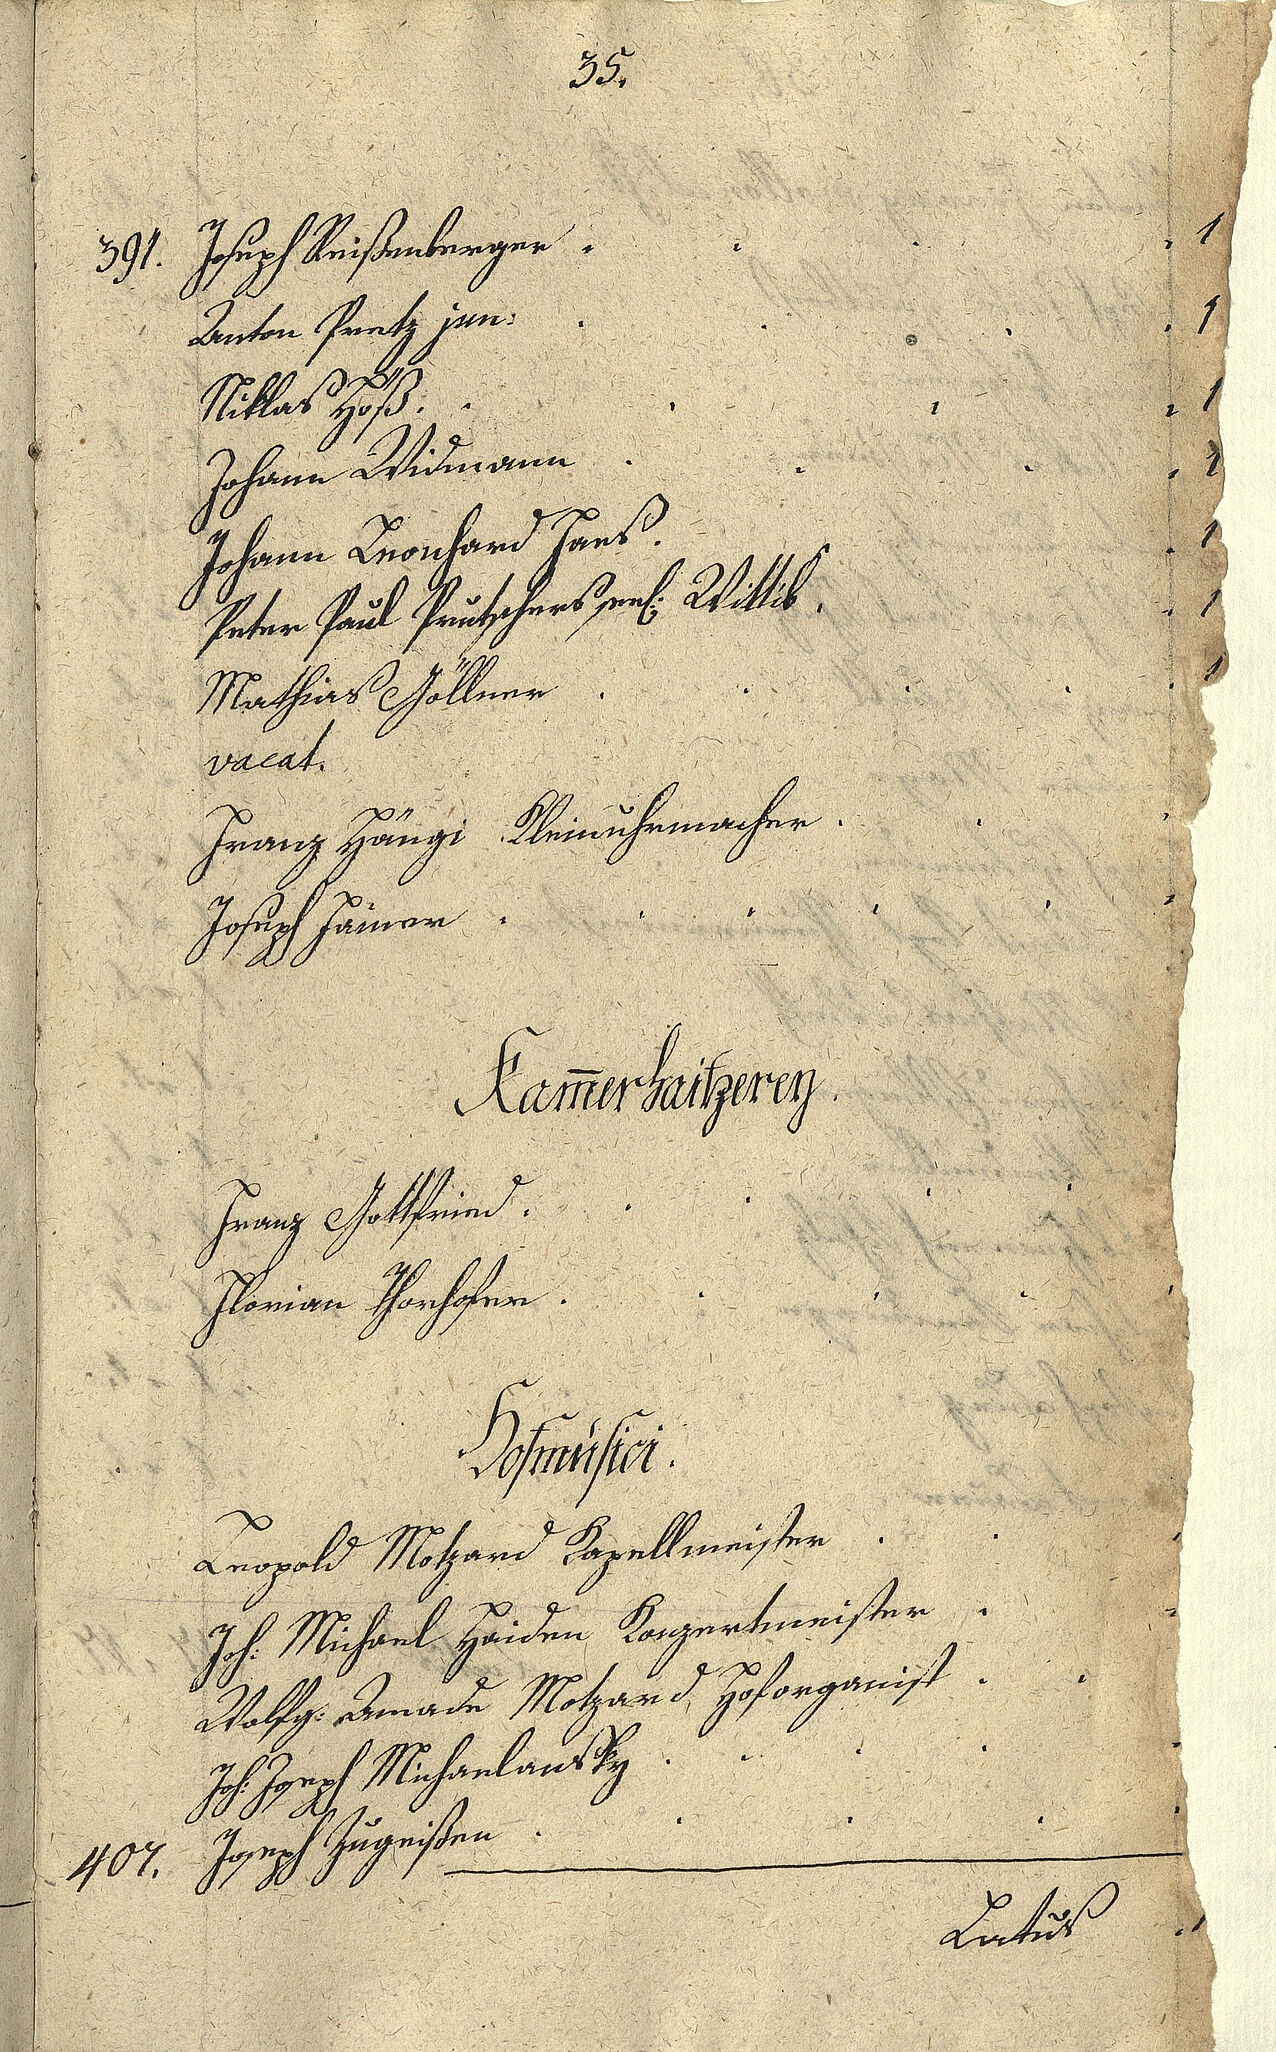 35.
391. Joseph Reißenberger . . . . 1
Anton Pretz jun: . . . . 1
Niklas Höß. . . . . 1
Johann Widmann . . . . 1
Johann Leonhard Haas. . 1
Peter Paul Prutschers seel: Wittib. . 1
Mathias Göllner . . . . . 1
vacat.
Franz Hängi Kleinuhrmacher . . .
Joseph . . . . . .
Kam̅erhaitzerey.
Franz Gottfried . . . . .
Florian Thorhofer . . . . .
Hofmusici.
Leopold Motzard Kapellmeister . . .
Joh: Michael Haiden Konzertmeister . .
Wolfg: Amade Motzard Hoforganist . .
Joh: Joseph Michaelansky . . . . .
407. Joseph Zugeißen . . . . .
Latus . 1